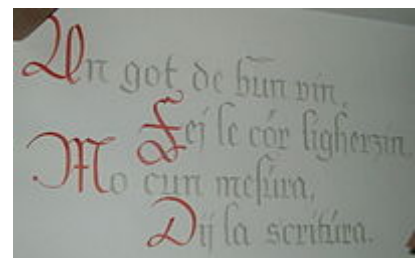 Un got de bun vin,
Fej le cór ligherzin.
Mo cun mesura,
Dij la scritúra.